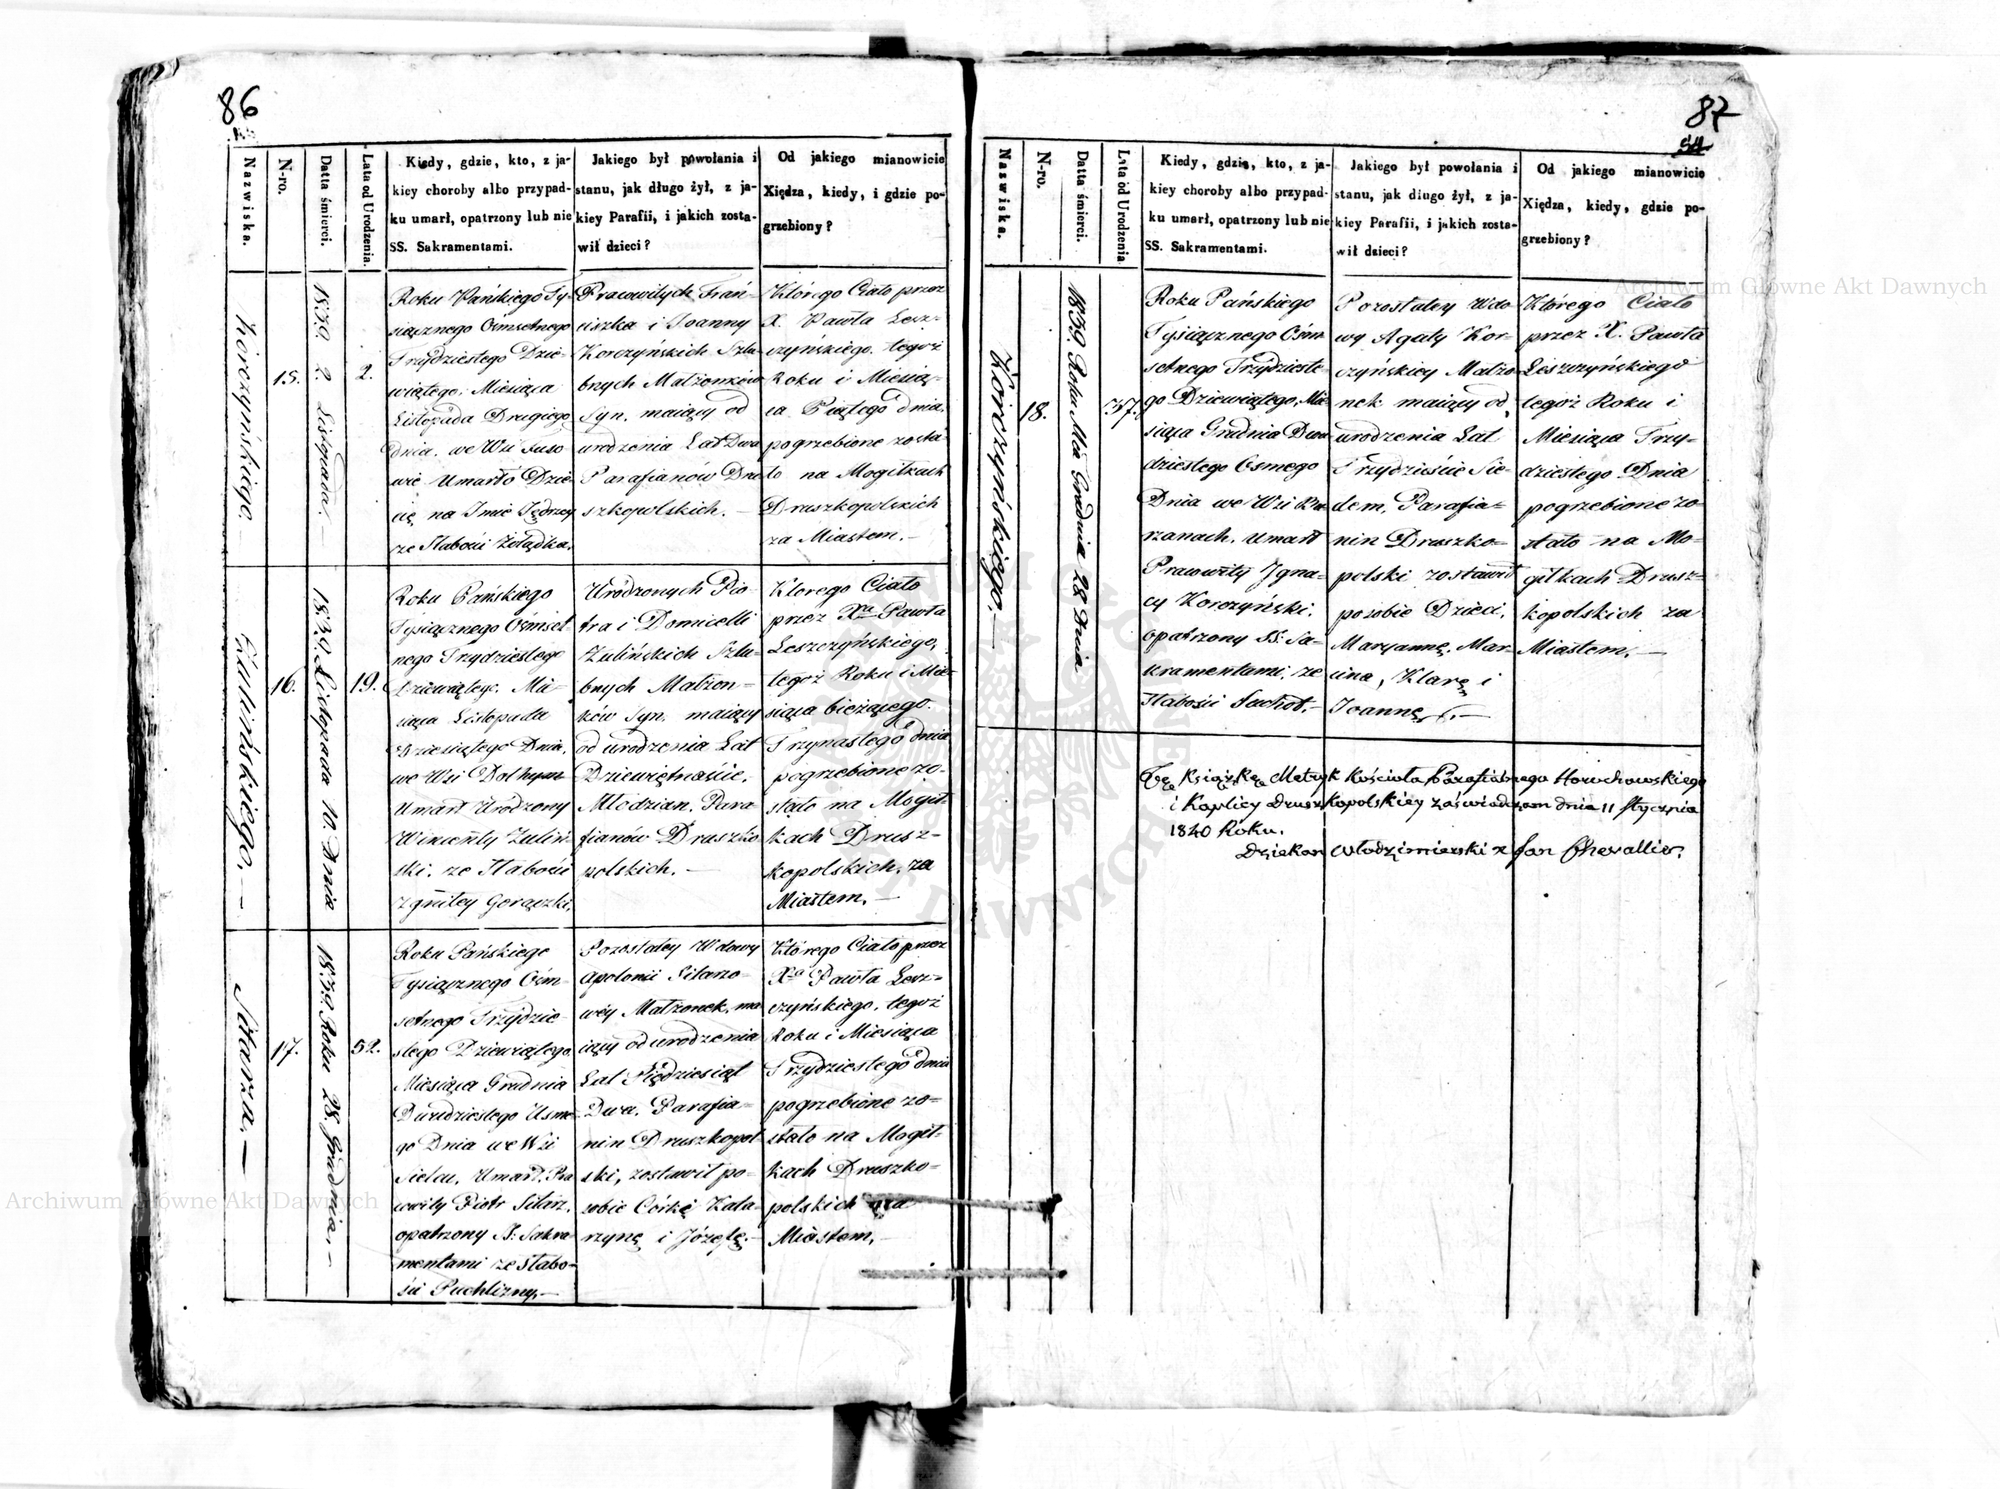 86
Nazwiska.
N-ro.
Datta śmierci.
Lata od Urodzenia.
Kiedy, gdzie, kto, z ja-
kiey choroby albo przypad-
ku umarł, opatrzony lub nie
SS. Sakramentami.
Jakiego był powołania i
stanu, jak długo żył, z ja-
kiey Parafii, i jakich zosta-
wił dzieci?
Od jakiego mianowicie
Xiędza, kiedy, i gdzie po-
grzebiony?
Korczyńskiego.
15.
1839. 2. Listopada.
2.
Roku Pańskiego Ty-
siącznego Ośmsetnego
Trzydziestego Dzie-
wiątego, Miesiąca
Listopada Drugiego
dnia, we Wsi
wie Umarło Dzie-
cię na Imie Jędrzey
ze Słabości Żołądka.
Pracowitych Fran-
ciszka i Joanny
Korczyńskich Szlu-
bnych Małżonków
Syn, maiący od
urodzenia Lat Dwa
Parafianów Dru-
szkopolskich. —
Którego Ciało przez
X. Pawła Lesz-
czyńskiego, tegoż
Roku i Miesią-
ca Piątego dnia,
pogrzebione zosta-
ło na Mogiłkach
Druszkopolskich
za Miastem. —
Żulińskiego. —
16.
1839. Listopada 10. Dnia
19.
Roku Pańskiego
Tysiącznego Ośmset-
nego Trzydziestego
Dziewiątego, Mie-
siąca Listopada
Dziesiątego Dnia,
we Wsi
Umarł Urodzony
Wincenty Żuliń-
ski, ze Słabości
zgniłey Gorączki.
Urodzonych Pio-
tra i Domicelli
Żulińskich Szlu-
bnych Małżon-
ków Syn, maiący
od urodzenia Lat
Dziewiętnaście,
Młodzian, Para-
fianów Druszko-
polskich. —
Którego Ciało
przez Xa Pawła
Leszczyńskiego,
tegoż Roku i Mie-
siąca bieżącego
Trzynastego dnia
pogrzebione zo-
stało na Mogił-
kach Drusz-
kopolskich, za
Miastem. —
Sitarza. —
17.
1839 Roku 28. Grudnia. —
52.
Roku Pańskiego
Tysiącznego Ośm-
setnego Trzydzie-
stego Dziewiątego
Miesiąca Grudnia
Dwudziestego Osme-
go Dnia we Wsi
Sielcu, Umarł Pra-
cowity Piotr Sitarz,
opatrzony SS: Sakra-
mentami ze słabo-
ści Puchlizny. —
Pozostałey Wdowy
Apolonii Sitarzo-
wéy Małżonek, ma-
iący od urodzenia
Lat Pięćdziesiąt
Dwa, Parafia-
nin Druszkopol-
ski, zostawił po-
sobie Córkę Kata-
rzynę i Józefę. —
Którego Ciało przez
Xa Pawła Lesz-
czyńskiego, tegoż
Roku i Miesiąca
Trzydziestego dnia
pogrzebione zo-
stało na Mogił-
kach Druszko-
polskich za
Miastem. —
87
Nazwiska.
N-ro.
Datta śmierci.
Lata od Urodzenia.
Kiedy, gdzie, kto, z ja-
kiey choroby albo przypad-
ku umarł, opatrzony lub nie
SS. Sakramentami.
Jakiego był powołania i
stanu, jak długo żył, z ja-
kiey Parafii, i jakich zosta-
wił dzieci?
Od jakiego mianowicie
Xiędza, kiedy, gdzie po-
grzebiony?
Korczyńskiego. —
18.
1839 Roku Mca Grudnia 28 Dnia
37.
Roku Pańskiego
Tysiącznego Ośm-
setnego Trzydzieste-
go Dziewiątego, Mie-
siąca Grudnia Dwu-
dziestego Osmego
Dnia we Wsi
rzanach, Umarł
Pracowity Igna-
cy Korczyński,
opatrzony SS: Sa-
kramentami, ze
Słabości Suchot. —
Pozostałey Wdo-
wy Agaty Kor-
czyńskiey Małżo-
nek maiący od
urodzenia Lat
Trzydzieście Sie-
dem, Parafia-
nin Druszko-
polski zostawił
posobie Dzieci,
Maryannę, Mar-
cina, Klarę i
Joannę. —
Którego Ciało
przez X. Pawła
Leszczyńskiego
tegoż Roku i
Miesiąca Trzy-
dziestego Dnia
pogrzebione zo-
stało na Mo-
giłkach Drusz-
kopolskich za
Miastem. —
Tę Książkę Metryk Kościoła Parafialnego Horuchowskiego
i Kaplicy Druszkopolskiey zaświadczam dnia 11 Stycznia
1840 Roku.
Dziekan Włodzimierski x Jan Chevallier.
Archiwum Główne Akt Dawnych
Archiwum Główne Akt Dawnych